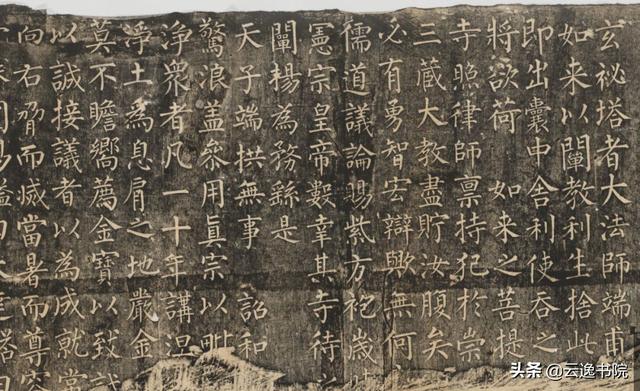 玄祕塔者大法師端甫
如來以闡教利生捨此
即出囊中舍利使吞之
將欲荷 如來之菩提
寺照律師禀持犯於崇
三藏大教盡貯汝腹矣
必有勇智宏辯歟無何
儒道議論賜紫方袍歲
憲宗皇帝數幸其寺待
闡揚為務繇是
天子端拱無事 詔和
驚浪蓋參用真宗以毗
淨衆者凡一十年講涅
淨土為息肩之地嚴金
莫不瞻嚮薦金寶以致
以誠接議者以為成就常
向右脅而滅當暑而尊容
头条 @云逸书院